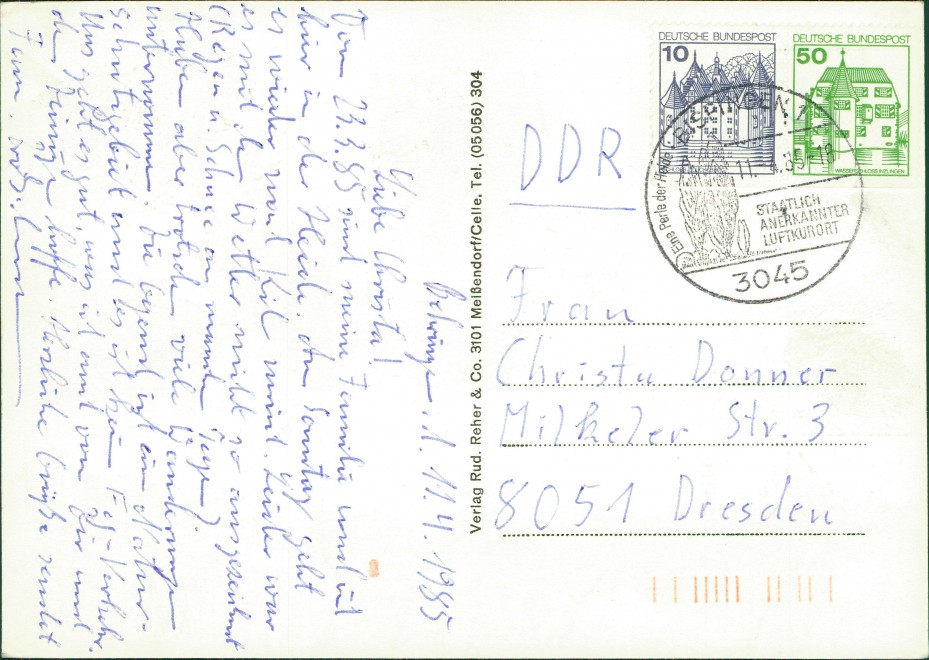 Behringen, d. 11.4.1985
Liebe Christa!
Vom 23.3.85 sind meine Familie und ich
hier in der Heide. Am Sonntag geht
es wieder nach Kiel zurück. Leider war
es mit dem Wetter nicht so ausgezeichnet
(Regen u. Schnee an manchen Tagen).
Haben aber trotzdem viele Wanderungen
unternommen. Die Gegend ist ein Natur-
schutzgebiet und es ist kein Verkehr.
Uns geht es gut, was ich auch von Dir und
den Jungen hoffe. Herzliche Grüße sendet
Fam.
Verlag Rud. Reher & Co. 3101 Meißendorf/Celle. Tel. (05056) 304
DEUTSCHE BUNDESPOST
10
DEUTSCHE BUNDESPOST
50
WASSERSCHLOSS INZLINGEN
BEHRINGEN 1
Eine Perle der Heide
11.4.85-18
STAATLICH
ANERKANNTER
LUFTKURORT
3045
DDR
Frau
Christa Donner
Milkeler Str. 3
8051 Dresden